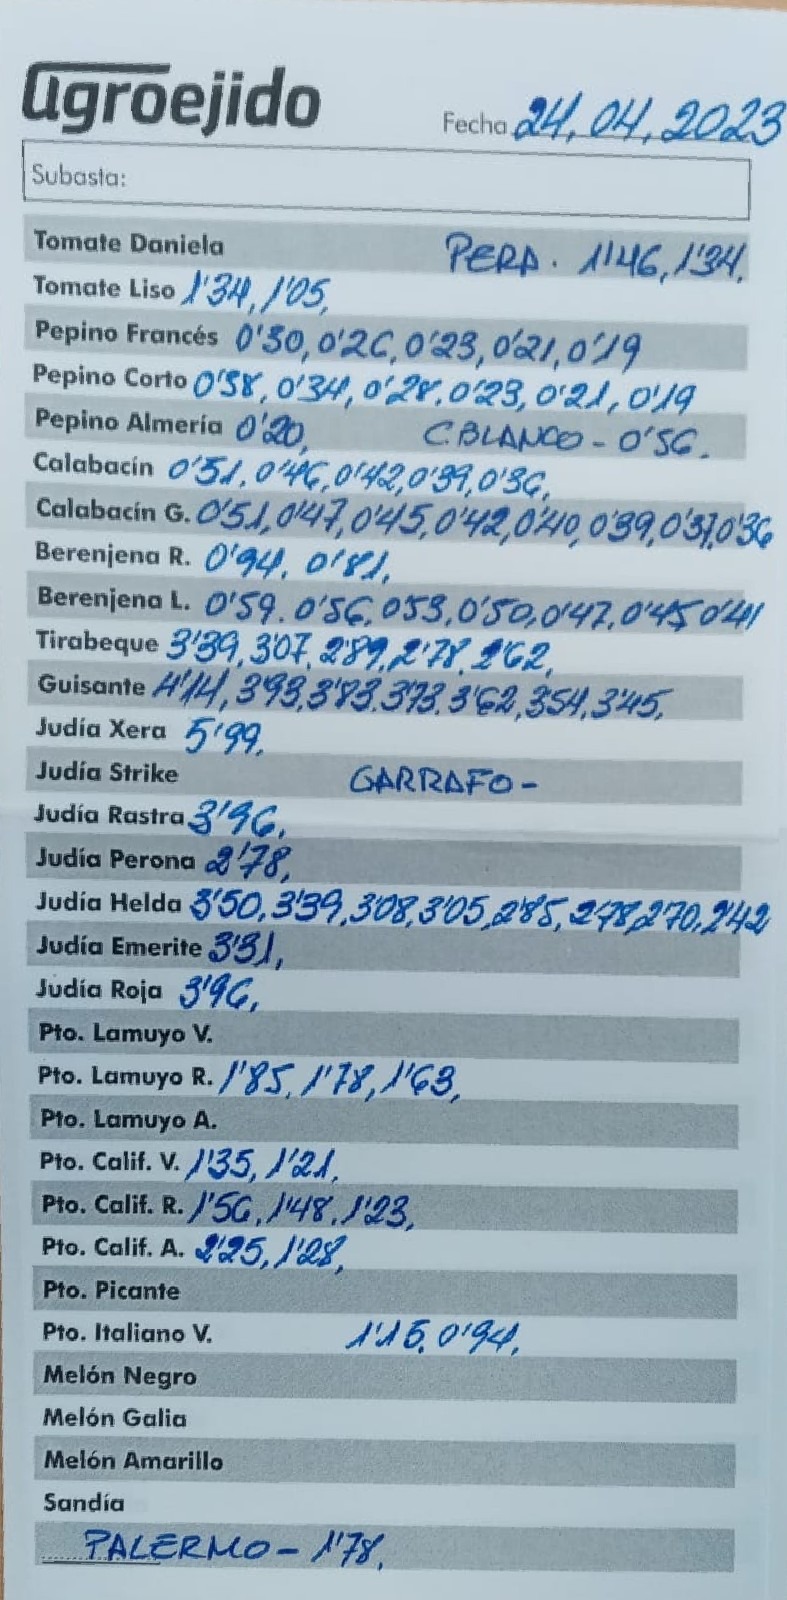 agroejido
Fecha 24.04.2023
Subasta:
Tomate Daniela PERA. 1'46, 1'34.
Tomate Liso 1'34, 1'05,
Pepino Francés 0'30, 0'26, 0'23, 0'21, 0'19
Pepino Corto 0'38, 0'34, 0'28, 0'23, 0'21, 0'19
Pepino Almería 0'20, C.BLANCO - 0'56.
Calabacín 0'51, 0'46, 0'42, 0'39, 0'36,
Calabacín G. 0'51, 0'47, 0'45, 0'42, 0'40, 0'39, 0'37, 0'36
Berenjena R. 0'94, 0'81,
Berenjena L. 0'59. 0'56, 053, 0'50, 0'47, 0'45, 0'41
Tirabeque 3'39, 3'07, 2'89, 2'78, 2'62,
Guisante 4'14, 3'93, 3'83, 3'73, 3'62, 354, 3'45,
Judía Xera 5'99,
Judía Strike GARRAFO -
Judía Rastra 3'96,
Judía Perona 2'78,
Judía Helda 3'50, 3'39, 3'08, 3'05, 2'85, 2'78, 2'70, 2'42
Judía Emerite 3'31,
Judía Roja 3'96,
Pto. Lamuyo V.
Pto. Lamuyo R. 1'85, 1'78, 1'63,
Pto. Lamuyo A.
Pto. Calif. V. 1'35, 1'21,
Pto. Calif. R. 1'56, 1'48, 1'23,
Pto. Calif. A. 2'25, 1'28,
Pto. Picante
Pto. Italiano V. 1'15, 0'94,
Melón Negro
Melón Galia
Melón Amarillo
Sandía
PALERMO - 1'78,